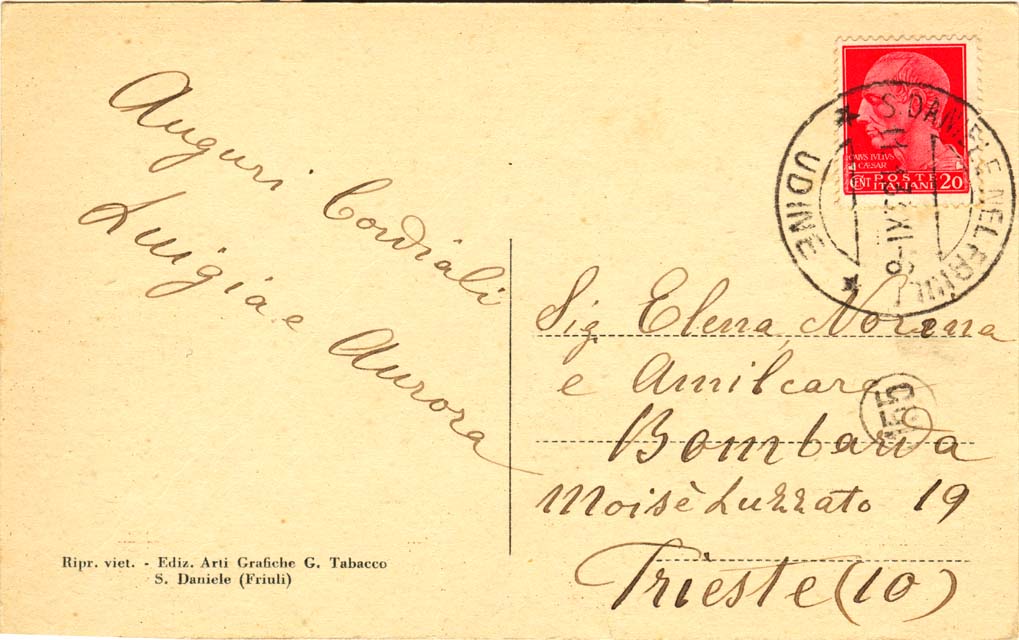 Auguri Cordiali
Luigia e Aurora
Ripr. viet. - Ediz. Arti Grafiche G. Tabacco
S. Daniele (Friuli)
CAIVS IVLIVS
CAESAR
CENT POSTE ITALIANE 20
S. DANIELE NEL FRIULI
UDINE
Sig Elena, Norina
e Amilcare
Bombarda
Moisè Luzzato 19
Trieste (10)